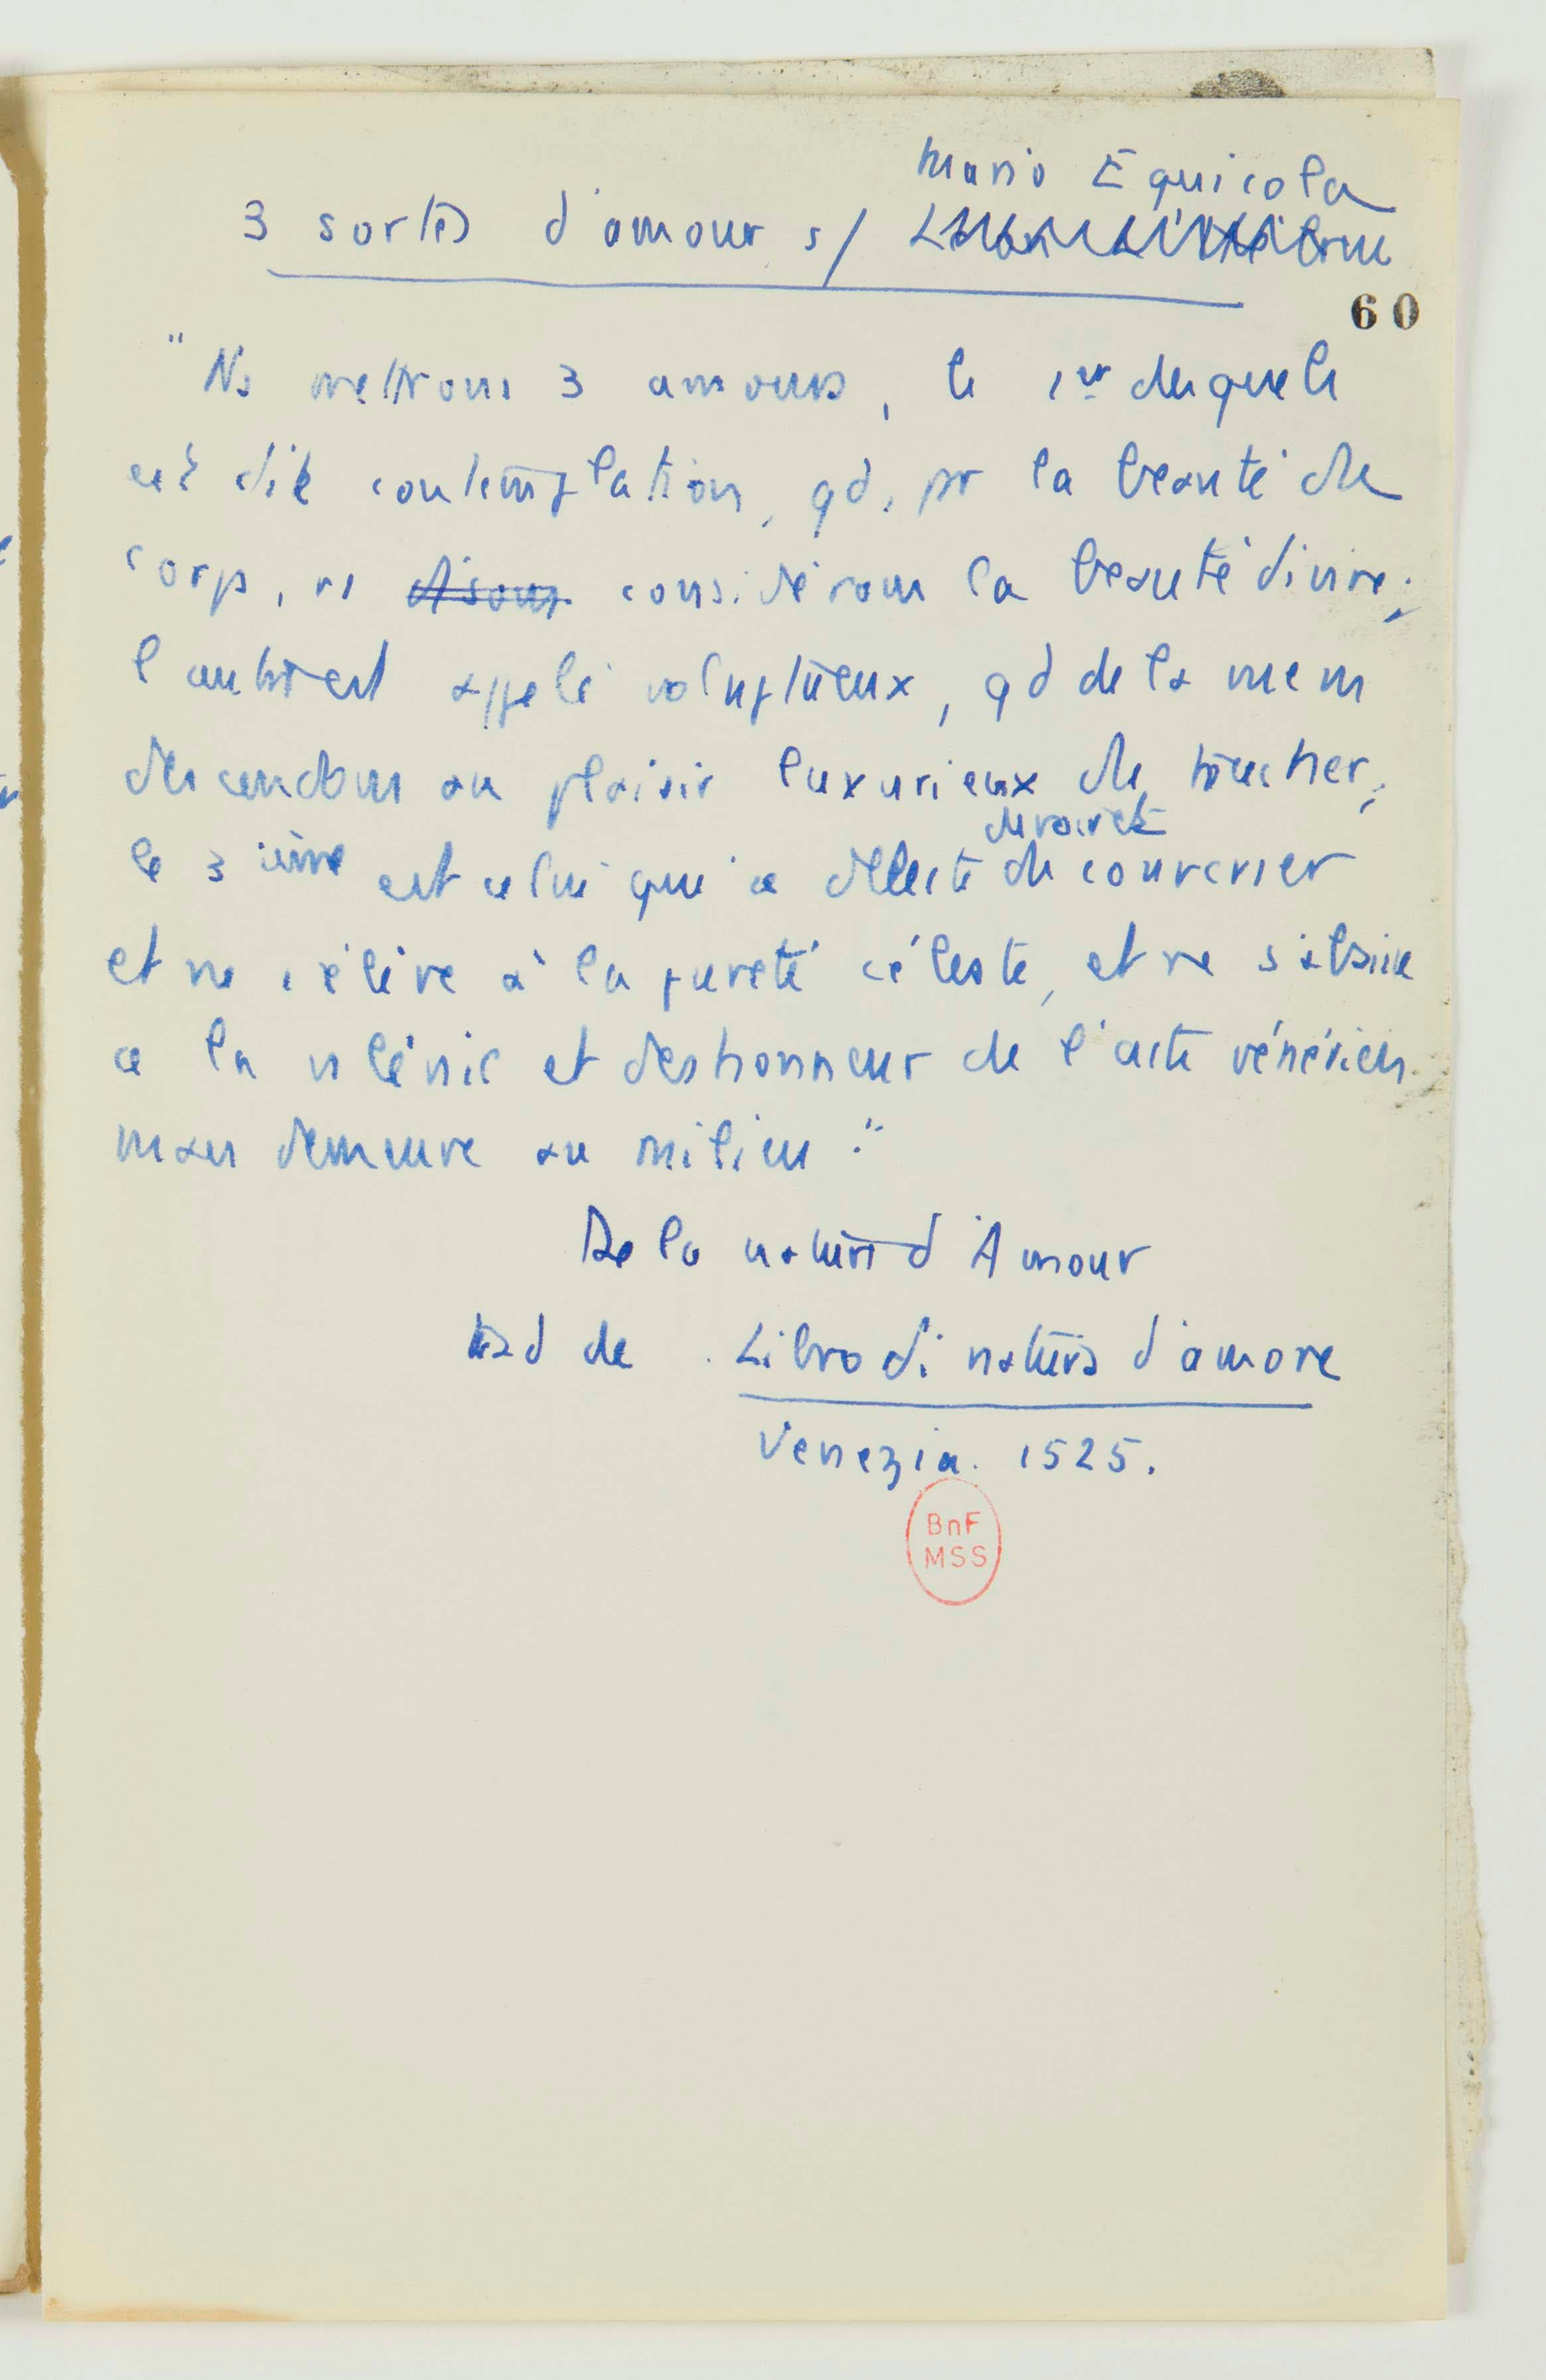 Mario Equicola
3 sortes d'amour s/
60
"Ns mettrons 3 amours, le 1er desquels
est dit contemplation, qd, pr la beauté de
corps, ns disons considérons la beauté divine;
l'autre est appelé voluptueux, qd de la vue ns
descendons au plaisir luxurieux de toucher;
le 3ième est celui qui se délecte de converser
et ne s'élève à la pureté céleste, et ne s'abaisse
a la vilénie et deshonneur de l'acte vénérien
mais demeure au milieu."
De la nature d'Amour
trad de Libro di natura d'amore
Venezia. 1525.
BnF
MSS